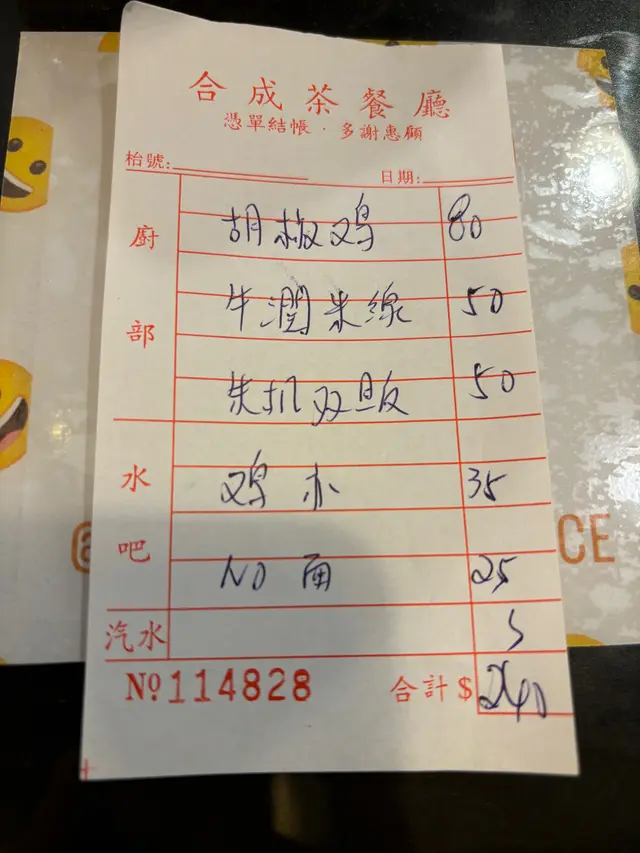 合成茶餐廳
憑單結帳·多謝惠顧
枱號: 日期:
廚部
胡椒鸡 80
牛潤米線 50
朱扒双旦飯 50
水吧
鸡亦 35
NO 面 25
汽水 5
Nº 114828 合計$ 240
CE